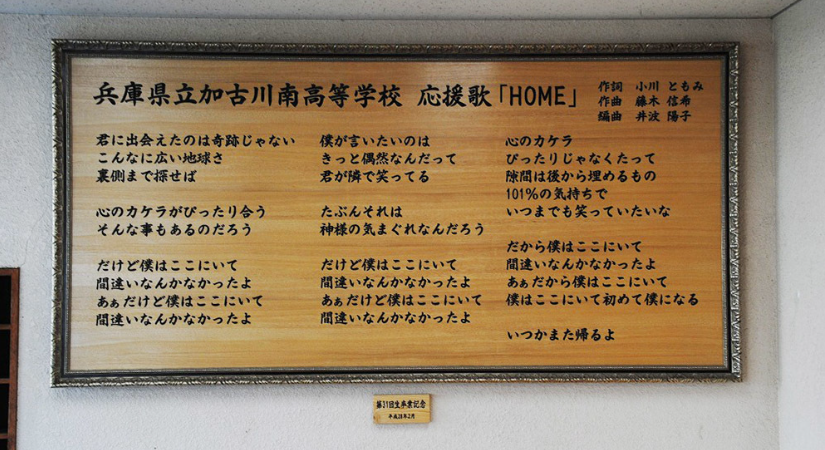 兵庫県立加古川南高等学校 応援歌「HOME」
作詞 小川 ともみ
作曲 藤木 信希
編曲 井波 陽子
君に出会えたのは奇跡じゃない
こんなに広い地球さ
裏側まで探せば
心のカケラがぴったり合う
そんな事もあるのだろう
だけど僕はここにいて
間違いなんかなかったよ
あぁだけど僕はここにいて
間違いなんかなかったよ
僕が言いたいのは
きっと偶然なんだって
君が隣で笑ってる
たぶんそれは
神様の気まぐれなんだろう
だけど僕はここにいて
間違いなんかなかったよ
あぁだけど僕はここにいて
間違いなんかなかったよ
心のカケラ
ぴったりじゃなくたって
隙間は後から埋めるもの
101%の気持ちで
いつまでも笑っていたいな
だから僕はここにいて
間違いなんかなかったよ
あぁだから僕はここにいて
僕はここにいて初めて僕になる
いつかまた帰るよ
第31回生卒業記念
平成28年2月